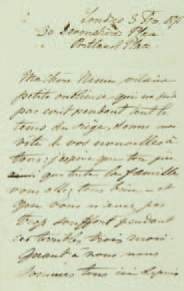 Londres 3 Fev 187
30 Devonshire Place
Portland Place
Ma chère Nana vilaine
petite oublieuse qui ne m'a
pas écrit pendant tout le
tems du siège, donne moi
vite de vos nouvelles à
tous; j'espère que toi
ainsi que toute la famille
vous allez tous bien — et
que vous n'avez pas
trop souffert pendant
ces terribles trois mois.
Quant à nous nous
sommes tous ici depuis